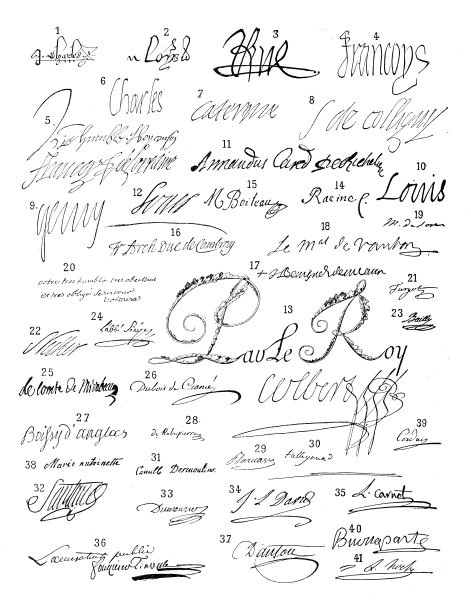 1 2 3 4
Francoys
6 Charles
7 Caterine
8 S de colligny
5
Francoys de Lorraine
11 Armandus Card. de Richelieu
10 Louis
9 Henry
12 Louis
15 N. Boileau
14 Racine
19
16 + Fr. Arch. Duc de Cambray
18 Le mal de Vauban
17 + J. Benigne de meaux
20 votre tres humble et tres obeissant
et tres obligé serviteur
Voltaire
21 Turgot
22 Necker
24 L'abbé Sieyes
13 Par Le Roy
Colbert
23 Bailly
25 Le comte De Mirabeau
26 Dubois de Crancé
27 Boissy d'anglas
28 de Robespierre
29
30 talleyrand
39 Corday
38 Marie antoinette
31 Camille Desmoulins
32
33 Dumouriez
34 J. L. David
35 L. Carnot
36 L'accusateur public
Fouquier Tinville
37 Danton
40 Buonaparte
41 L. Hoche